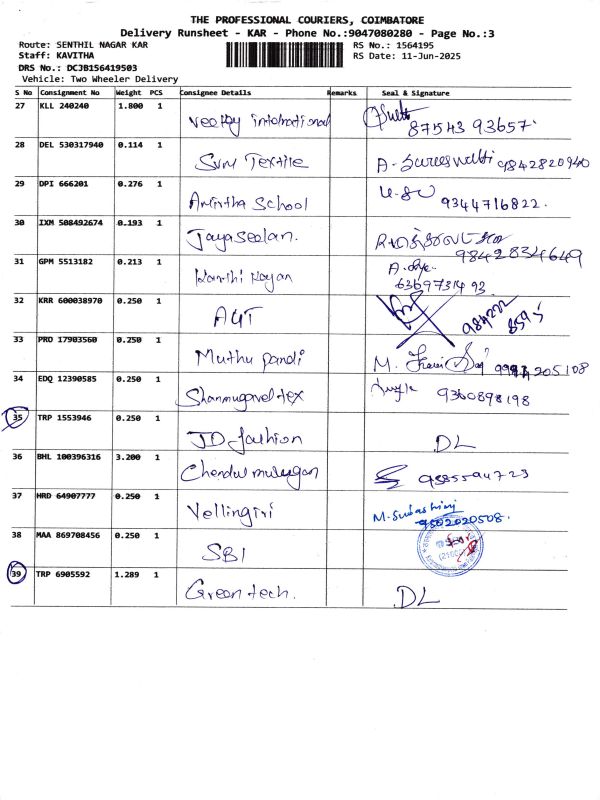 THE PROFESSIONAL COURIERS, COIMBATORE
Delivery Runsheet - KAR - Phone No.:9047080280 - Page No.:3
Route: SENTHIL NAGAR KAR RS No.: 1564195
Staff: KAVITHA RS Date: 11-Jun-2025
DRS No.: DCJB156419503
Vehicle: Two Wheeler Delivery
S No Consignment No Weight PCS Consignee Details Remarks Seal & Signature
27 KLL 240240 1.800 1 Veekay international 87543 93657.
28 DEL 530317940 0.114 1 Svm Textile 9842820940
29 DPI 666201 0.276 1 Amirtha School 9344716822.
30 IXM 508492674 0.193 1 Jayaseelan. 9842834649
31 GPM 5513182 0.213 1 6369731493
32 KRR 600038970 0.250 1
33 PRO 17903560 0.250 1 Muthu pandi M.
34 EDQ 12390585 0.250 1 Shanmugavel tex 9360898198
35 TRP 1553946 0.250 1 JD fashion DL
36 BHL 100396316 3.200 1
37 HRD 64907777 0.250 1 Vellingiri M. 9502020508.
38 MAA 869708456 0.250 1 SBI
39 TRP 6905592 1.289 1 Green tech. DL